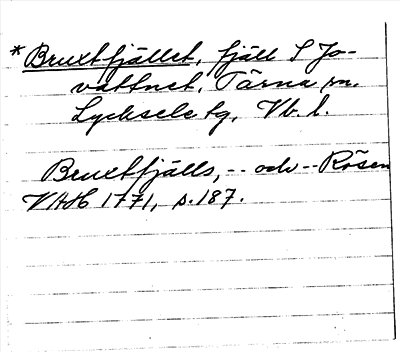 * Bruxtfjället, fjäll S Jo-
vattnet, Tärna sn.
Lycksele tg, Vb. l.
Bruxtfjälls, -- och -- Rösen
VHH 1771, s. 187.